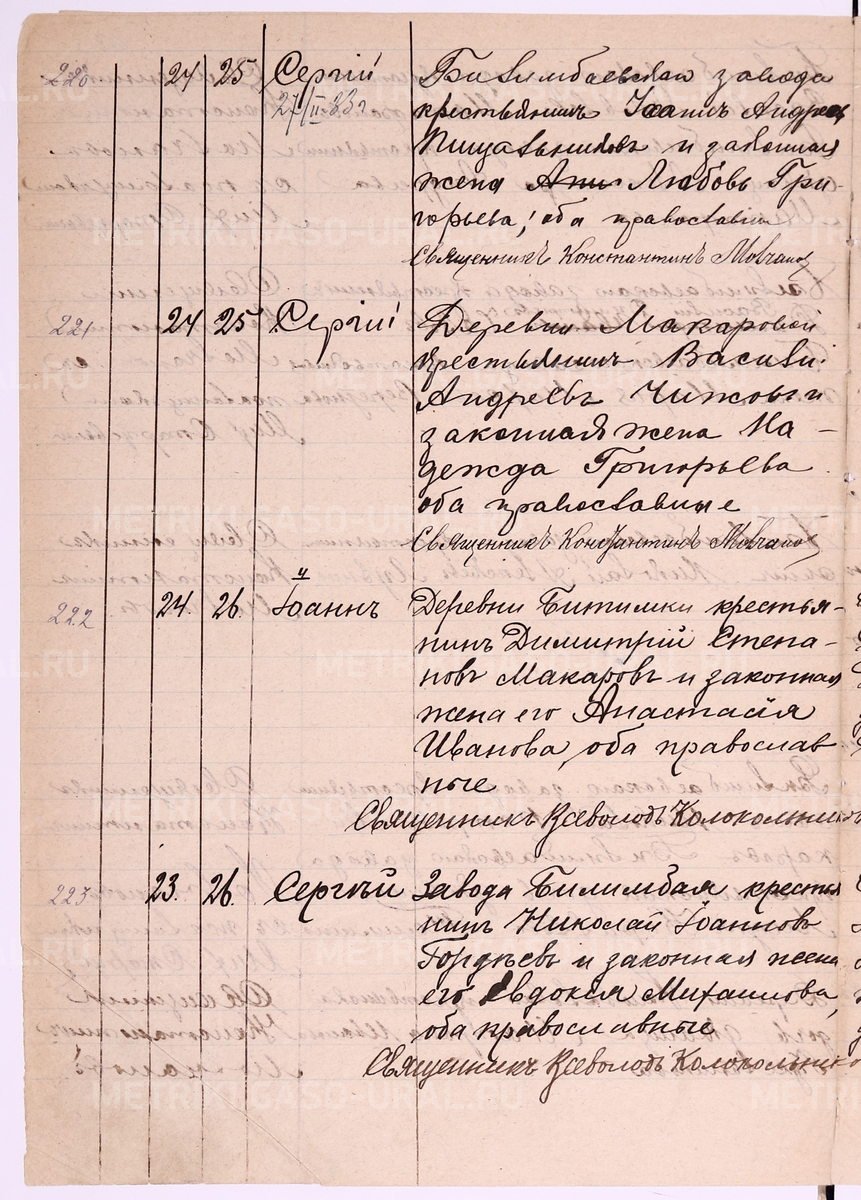 220. 24 25 Сергій Билимбаевскаго завода
27/II-83г крестьянинъ Іоаннъ Андреевъ
Пищальниковъ и законная
жена Любовь Гри-
горьева, оба православные
Священникъ Константинъ Мовчанов
221 24 25 Сергій Деревни Макаровой
крестьянинъ Василій
Андреевъ Чижовъ и
законная жена На-
дежда Григорьева
оба православные
Священникъ Константинъ Мовчанов
222 24. 26. Іоаннъ Деревни Битимки крестья-
нинъ Димитрій Степа-
новъ Макаровъ и законная
жена его Анастасія
Иванова, оба православ
ные
Священникъ Всеволодъ Колокольников
223 23. 26. Сергѣй Завода Билимбая крестья
нинъ Николай Іоанновъ
Гордѣевъ и законная жена
его Евдокія Михаилова,
оба православные
Священникъ Всеволодъ Колокольников
METRIKI.GASO-URAL.RU